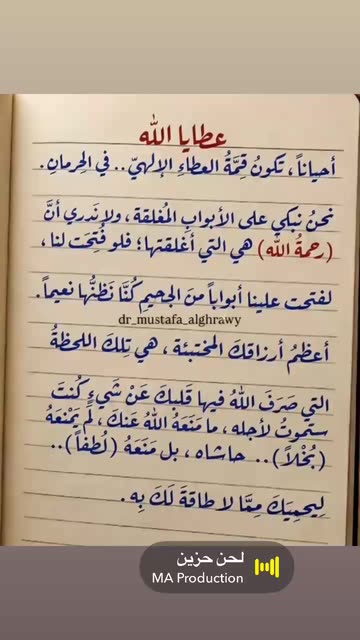 عطايا الله
أحياناً، تكونُ قِمَّةُ العطاءِ الإلهيّ.. في الحِرمانِ.
نحنُ نبكي على الأبوابِ المُغلقة، ولا نَدري أنَّ
(رحمةُ الله) هي التي أغلقتها؛ فلو فُتِحَت لنا،
لفتحت علينا أبواباً منَ الجحيمِ كُنَّا نَظنُّها نعيماً.
dr_mustafa_alghrawy
أعظمُ أرزاقكَ المختبئة، هي تِلكَ اللحظةُ
التي صَرَفَ اللهُ فيها قلبكَ عَنْ شَيءٍ كُنتَ
ستموتُ لأجله، ما مَنَعَهُ اللهُ عَنكَ، لَم يَمْنَعهُ
(بُخْلاً).. حاشاه، بل مَنَعَهُ (لُطفاً)..
لِيحمِيَكَ مِمَّا لا طاقةَ لَكَ بِه.
لحن حزين
MA Production